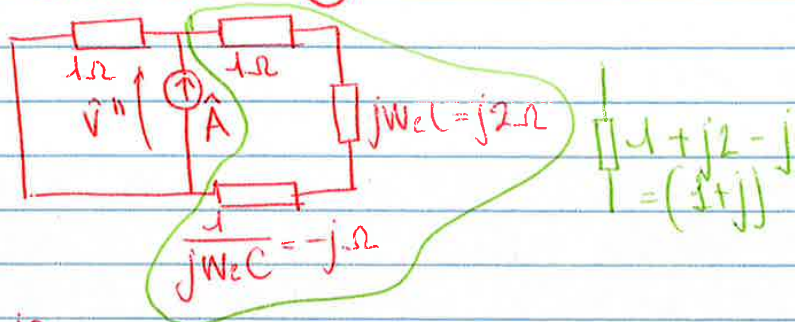 1Ω
1Ω
V̂"
Â
jW₂L=j2Ω
1/jW₂C = -jΩ
1+j2-j
=(1+j)